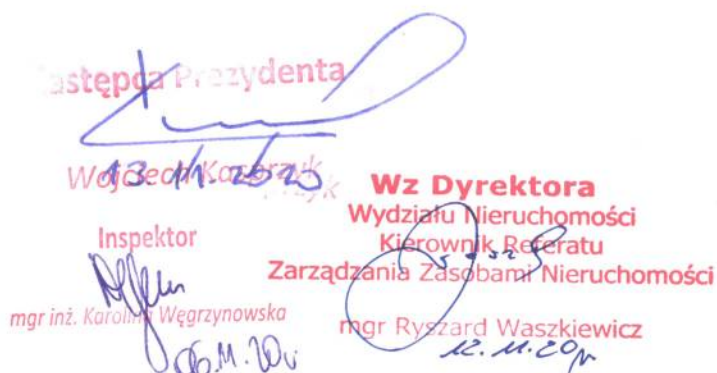 Zastępca Prezydenta
Wojciech
13. 11. 2020
Inspektor
mgr inż. Karolina Węgrzynowska
06.11.20r
Wz Dyrektora
Wydziału Nieruchomości
Kierownik Referatu
Zarządzania Zasobami Nieruchomości
mgr Ryszard Waszkiewicz
12.11.20r